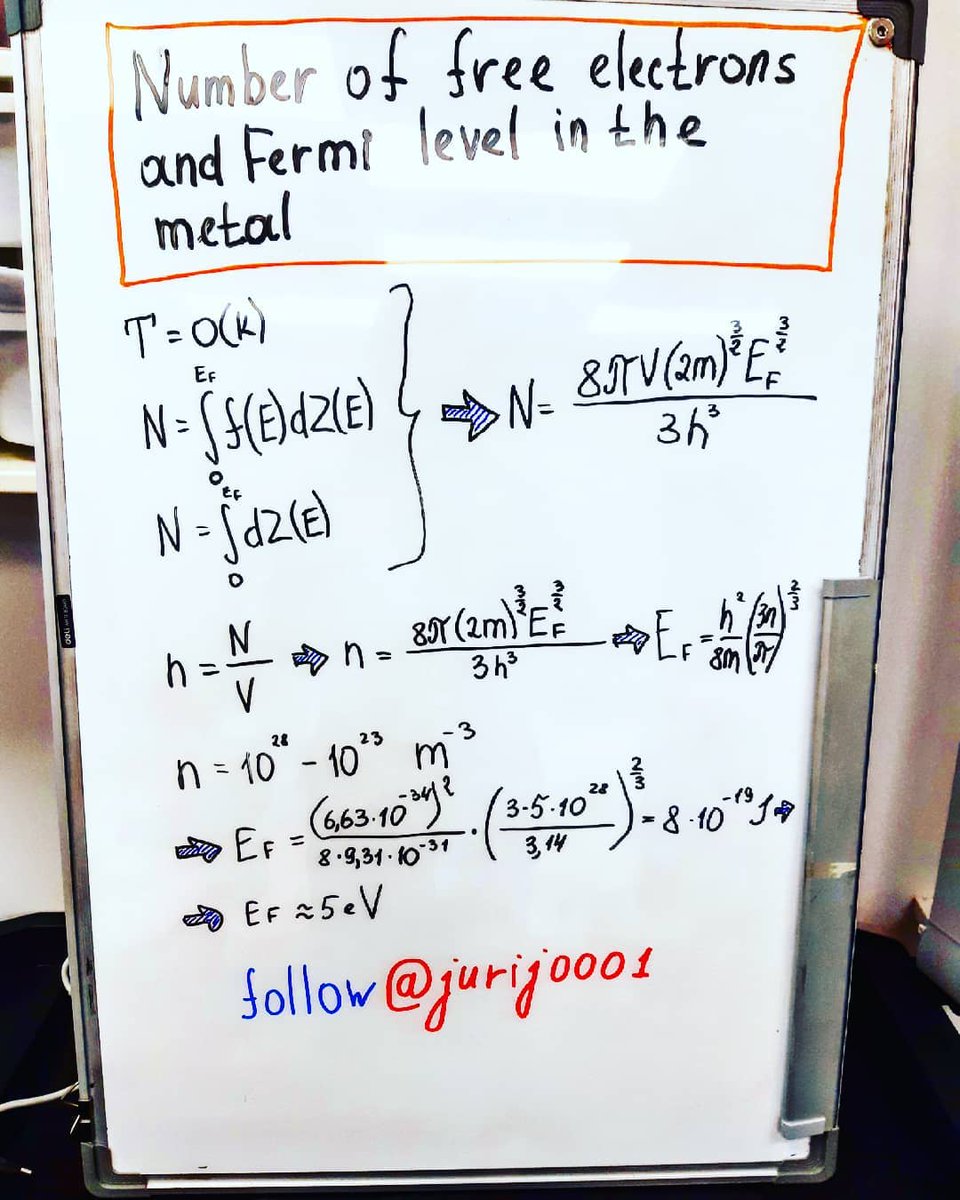 Number of free electrons
and Fermi level in the
metal
T = 0(K)
N = ∫₀^{E_F} f(E)dZ(E)
N = ∫₀^{E_F} dZ(E)
⇒ N = \frac{8πV(2m)^{\frac{3}{2}}E_F^{\frac{3}{2}}}{3h^3}
n = \frac{N}{V} ⇒ n = \frac{8π(2m)^{\frac{3}{2}}E_F^{\frac{3}{2}}}{3h^3} ⇒ E_F = \frac{h^2}{8m}(\frac{3n}{π})^{\frac{2}{3}}
n = 10^{28} - 10^{23} m^{-3}
⇒ E_F = \frac{(6,63·10^{-34})^2}{8·9,31·10^{-31}} · (\frac{3·5·10^{28}}{3,14})^{\frac{2}{3}} = 8·10^{-19} J ⇒
⇒ E_F ≈ 5 eV
follow @jurij0001